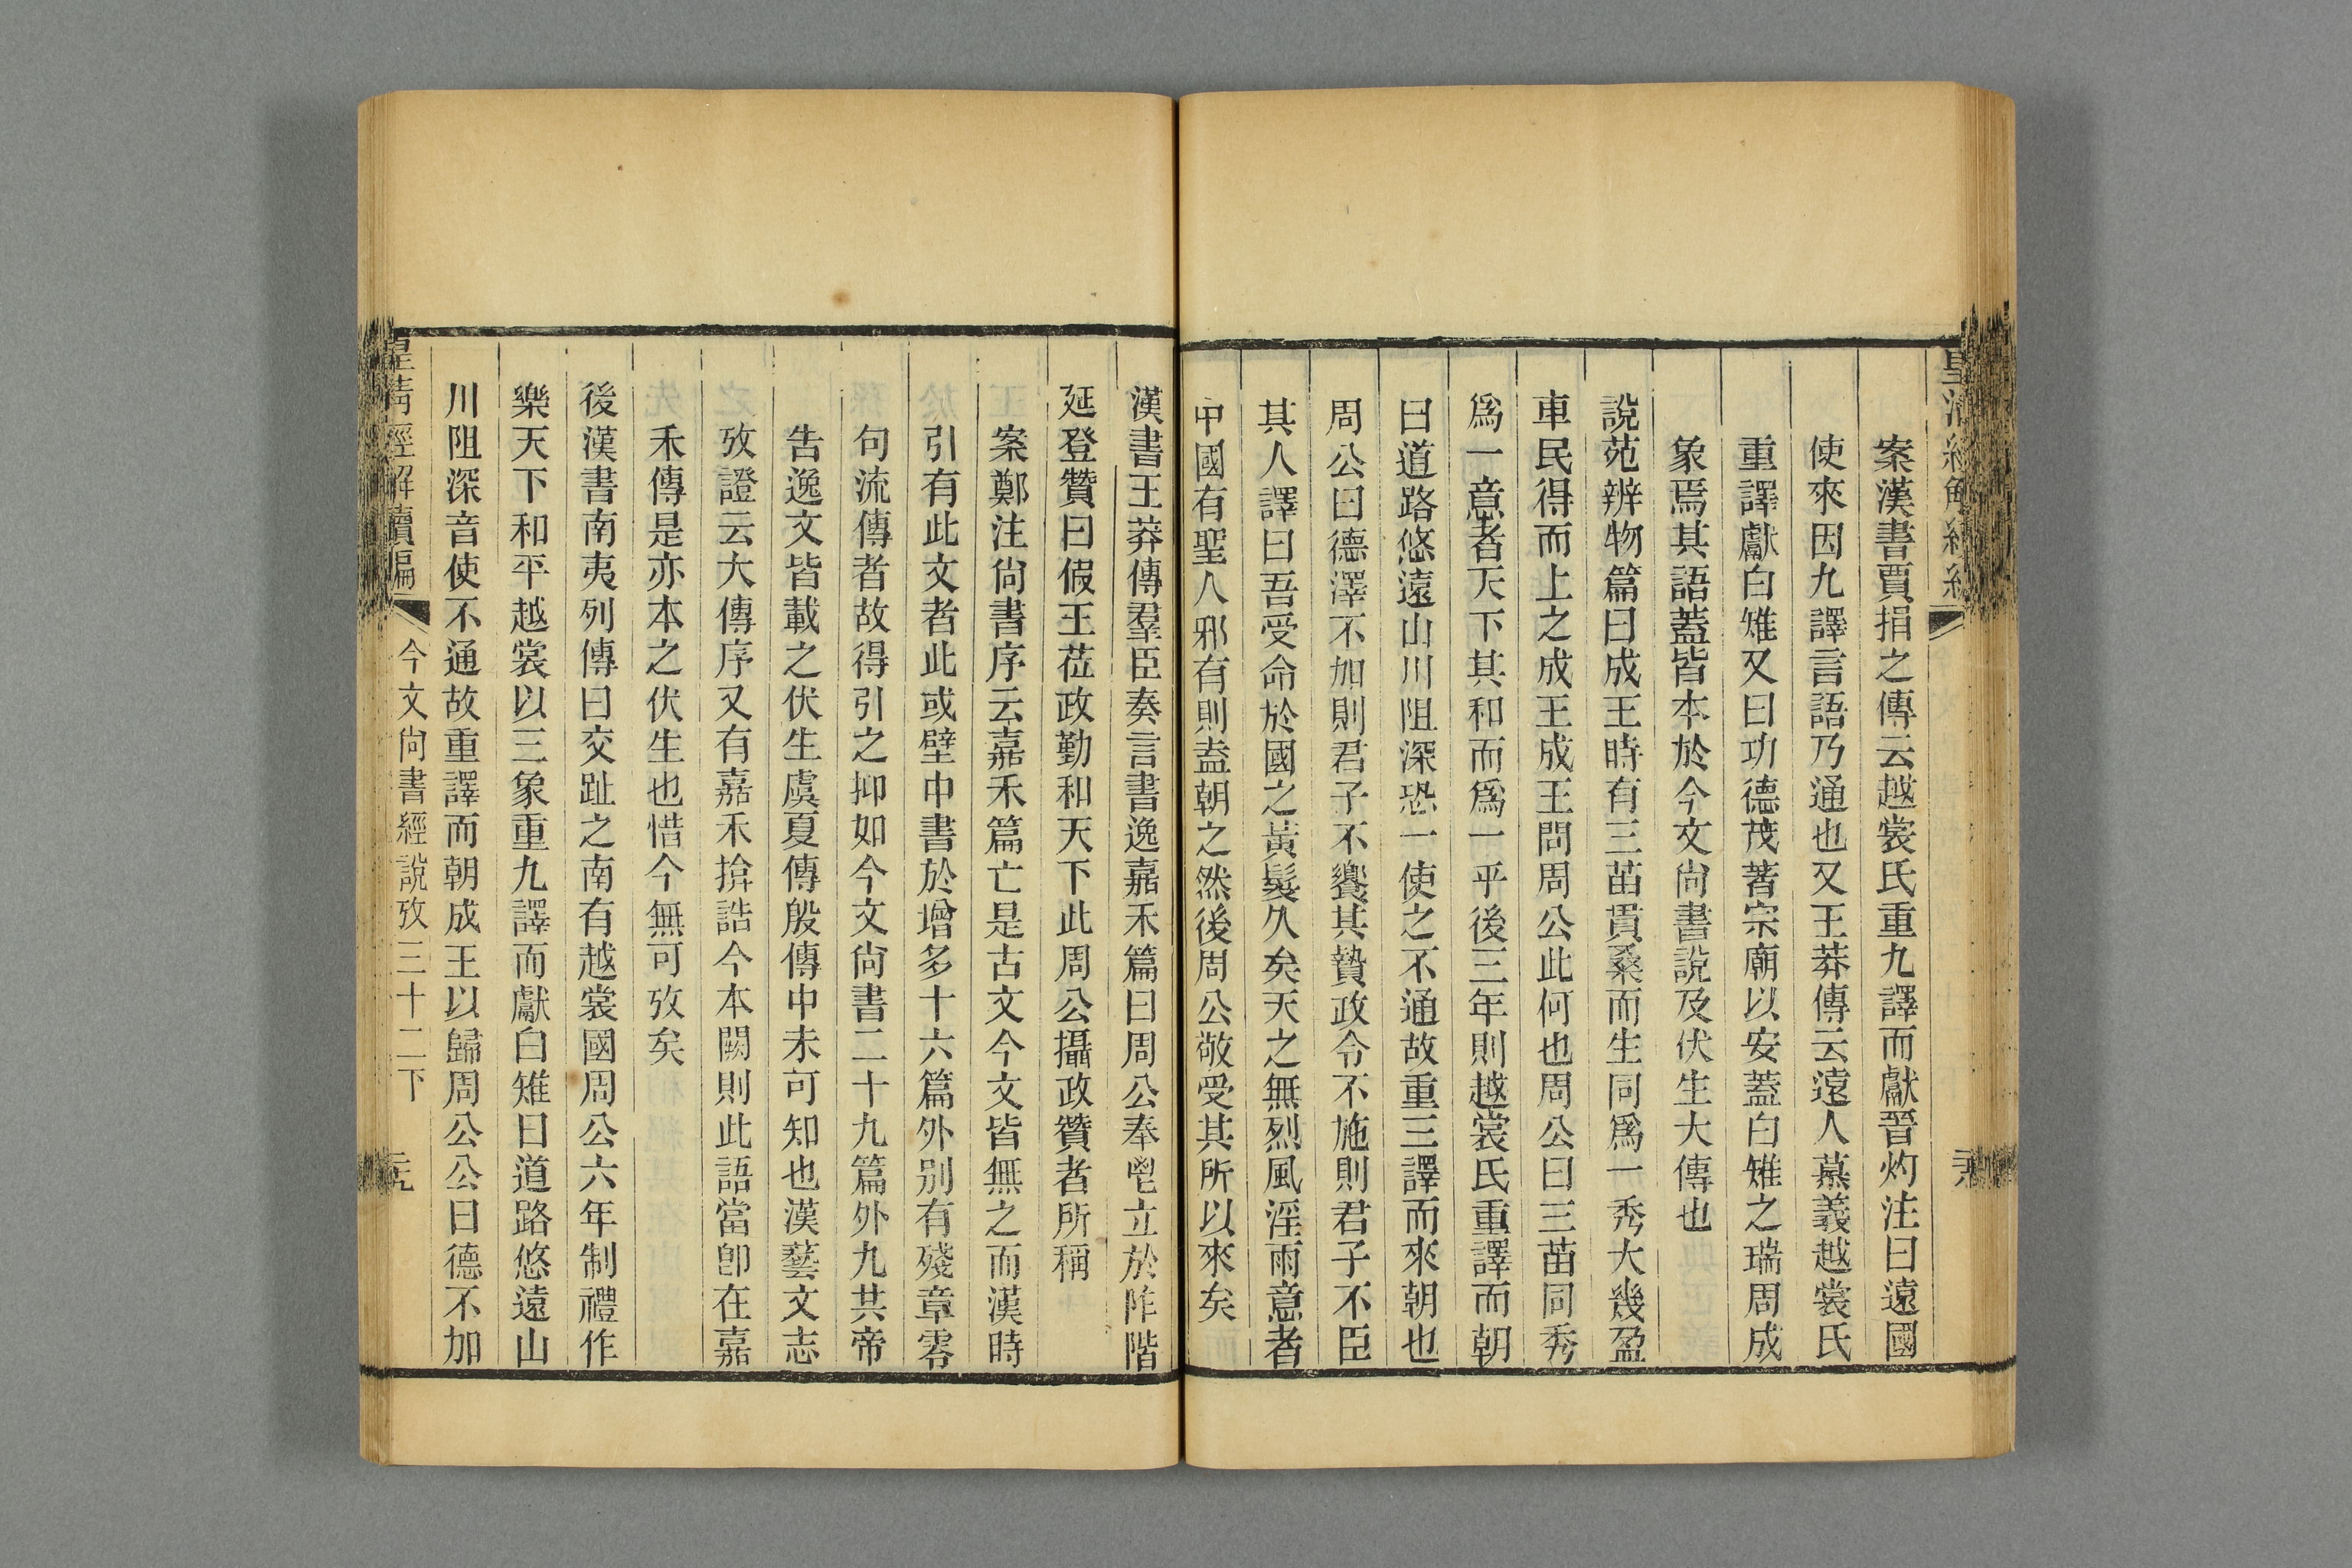 案漢書賈捐之傳云越裳氏重九譯而獻晉灼注曰遠國
使來因九譯言語乃通也又王莽傳云遠人慕義越裳氏
重譯獻白雉又曰功德茂著宗廟以安蓋白雉之瑞周成
象焉其語蓋皆本於今文尙書說及伏生大傳也
說苑辨物篇曰成王時有三苗貫桑而生同爲一秀大幾盈
車民得而上之成王成王問周公此何也周公曰三苗同秀
爲一意者天下其和而爲一乎後三年則越裳氏重譯而朝
曰道路悠遠山川阻深恐一使之不通故重三譯而來朝也
周公曰德澤不加則君子不饗其贄政令不施則君子不臣
其人譯曰吾受命於國之黃髮久矣天之無烈風淫雨意者
中國有聖人邪有則盍朝之然後周公敬受其所以來矣
漢書王莽傳羣臣奏言書逸嘉禾篇曰周公奉鬯立於阼階
延登贊曰假王莅政勤和天下此周公攝政贊者所稱
案鄭注尙書序云嘉禾篇亡是古文今文皆無之而漢時
引有此文者此或壁中書於增多十六篇外别有殘章零
句流傳者故得引之抑如今文尙書二十九篇外九共帝
告逸文皆載之伏生虞夏傳殷傳中未可知也漢藝文志
攷證云大傳序又有嘉禾揜誥今本闕則此語當卽在嘉
禾傳是亦本之伏生也惜今無可攷矣
後漢書南夷列傳曰交趾之南有越裳國周公六年制禮作
樂天下和平越裳以三象重九譯而獻白雉曰道路悠遠山
川阻深音使不通故重譯而朝成王以歸周公公曰德不加
皇淸經解續編
今文尙書經說攷三十二下